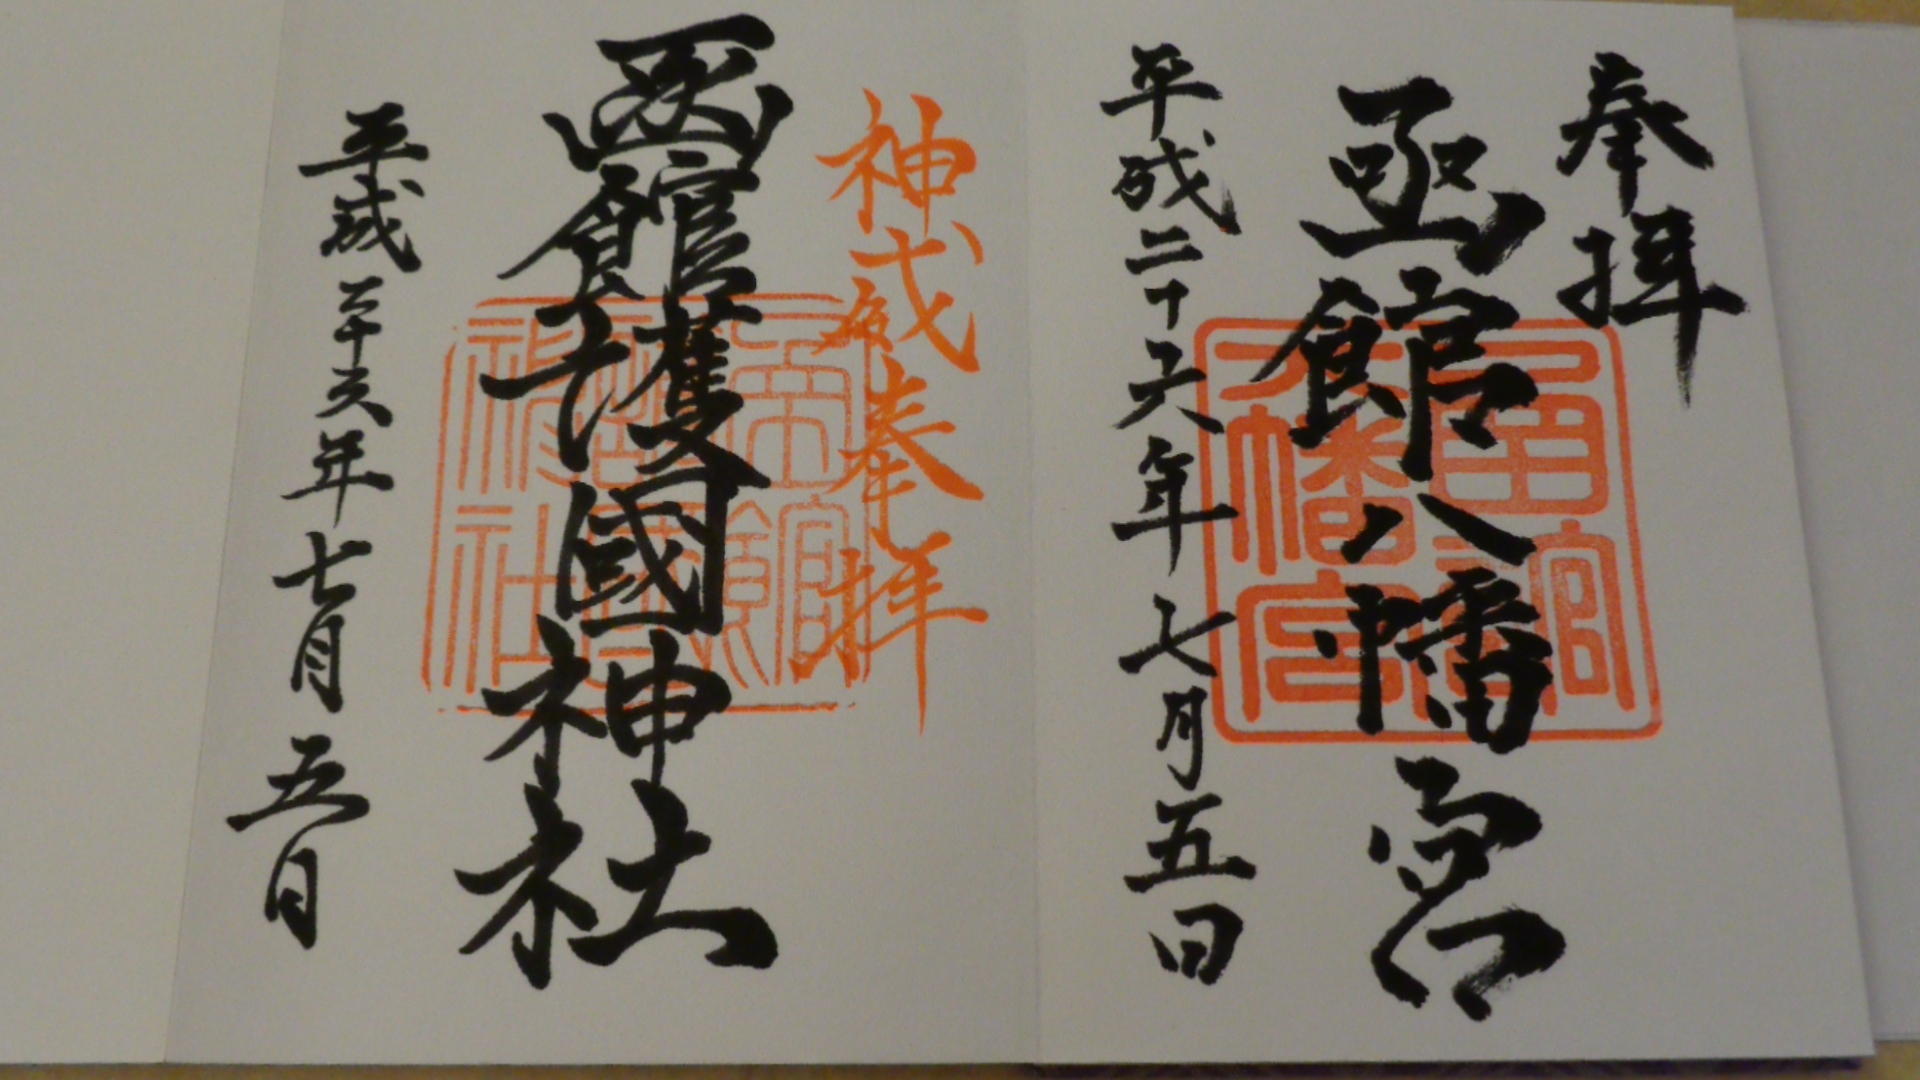 奉拝
函館八幡宮
函館八幡宮
平成二十六年七月五日
神威奉拝
函館護國神社
函館護國神社
平成二十六年七月五日